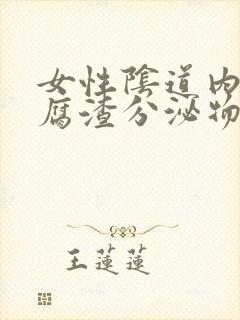 女性陰道內
腐渣分泌物
王蓮蓮